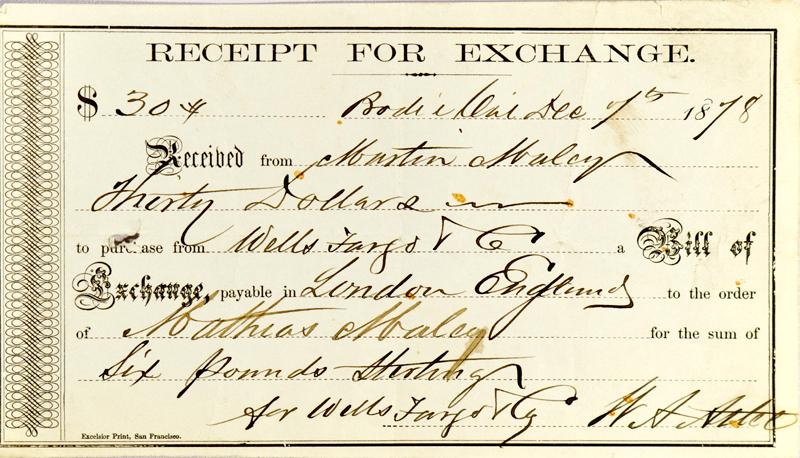 RECEIPT FOR EXCHANGE.
$ 30 Bodie Cal Dec 7th 1878
Received from Martin Maley
Thirty Dollars
to purchase from Wells Fargo & Co a Bill of
Exchange, payable in London England to the order
of Mathias Maley for the sum of
Six Pounds Sterling
for Wells Fargo & Co W A
Excelsior Print, San Francisco.